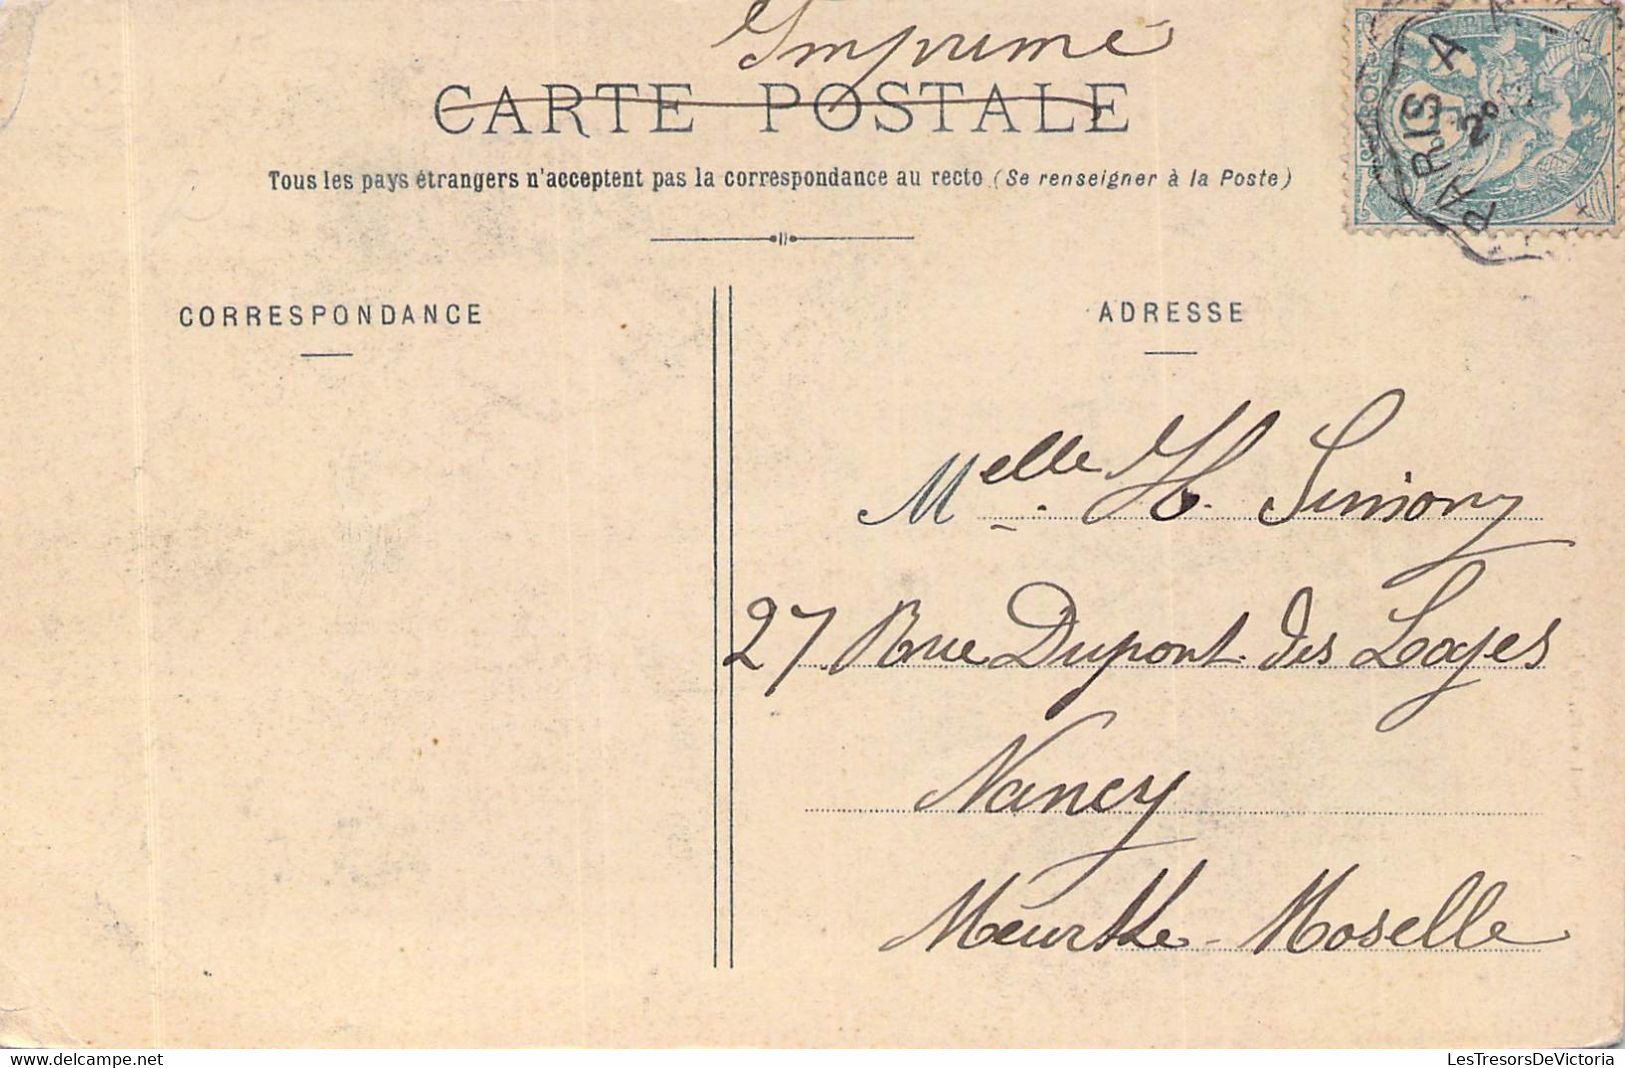 Imprimé
CARTE POSTALE
Tous les pays étrangers n'acceptent pas la correspondance au recto (Se renseigner à la Poste)
PARIS A
CORRESPONDANCE
ADRESSE
Melle. H. Simony
27 Rue Dupont des Loges
Nancy
Meurthe-Moselle
delcampe.net
LesTresorsDeVictoria